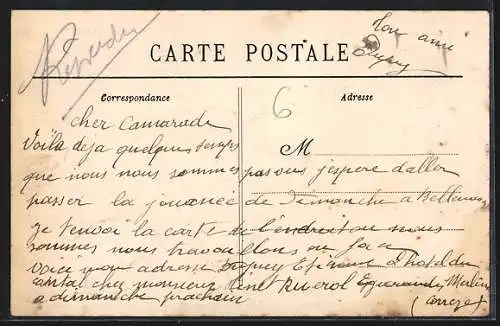 Ton ami
CARTE POSTALE
Correspondance
Adresse
6
M
cher Camarade
Voila deja quelques temps
que nous nous sommes pas vus j'espere d'aller
passer la journée de Dimanche a
je t'envoi la carte de l'endroit ou nous
sommes nous travaillons en face
voici mon adresse Etienne a l'hotel du
cantal chez monsieur
a dimanche prochain (Correze)